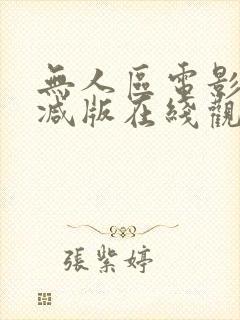 無人區電影
減版在綫觀
張紫婷